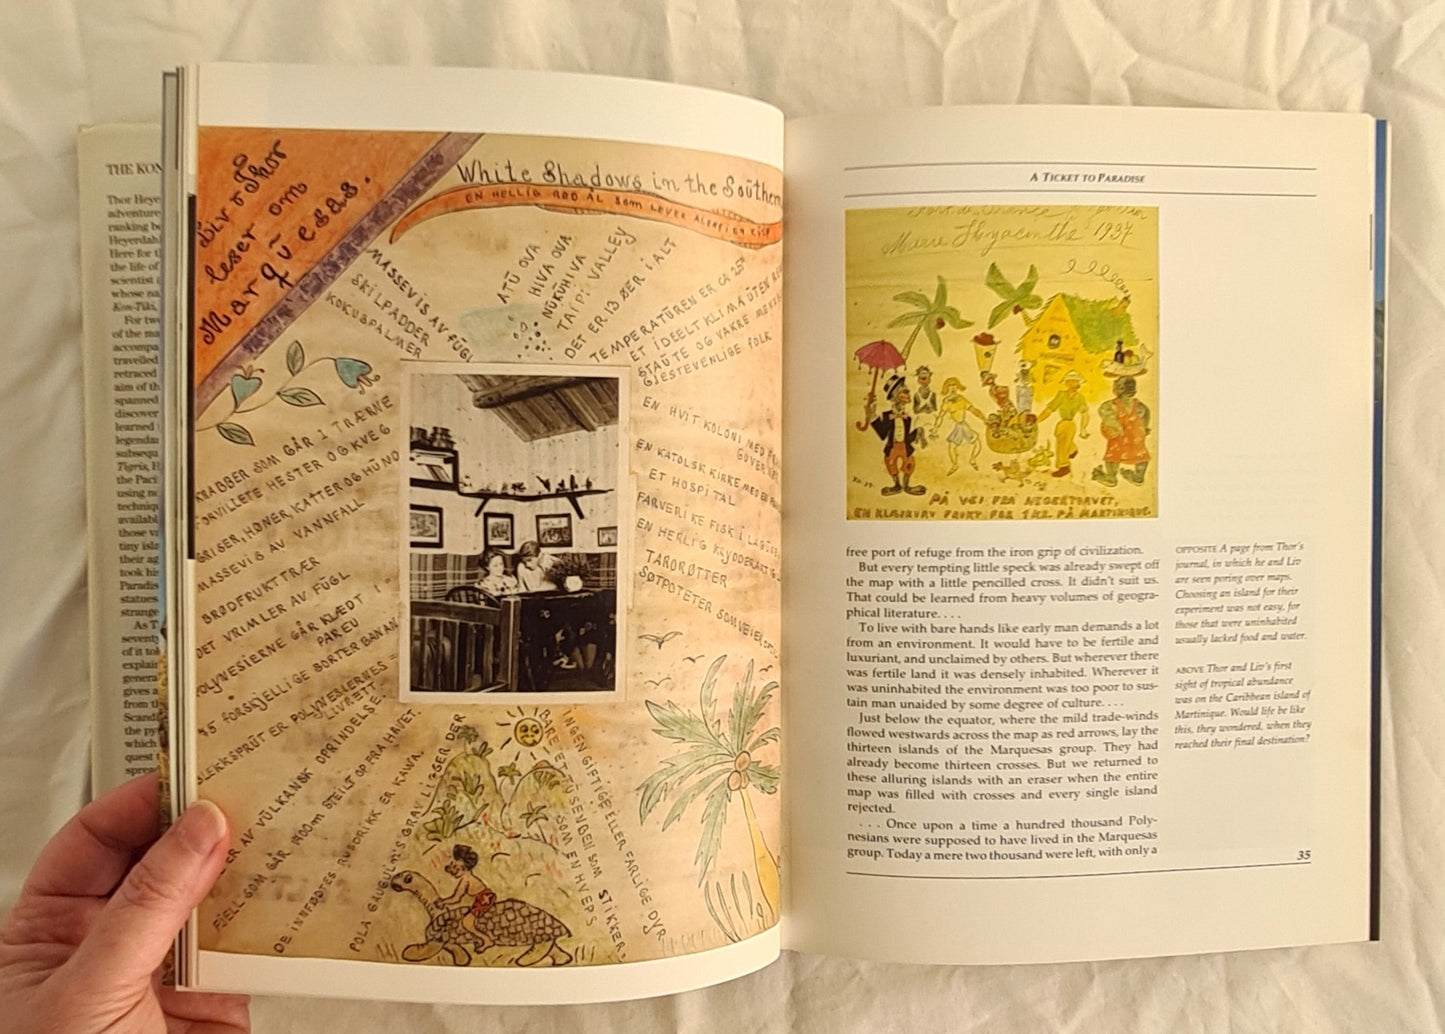 THE KON
Thor Heye
adventure
ranking b
Heyerdahl
Here for t
the life of
scientist
whose na
Kon-Tiki,
For two
of the ma
accompa
travelled
retraced
aim of th
spanned
discover
learned
legenda
subsequ
Tigris, H
the Paci
using n
techniqu
availabl
those v
tiny isla
their ag
took his
Paradis
statues
strange
As T
sevent
of it tol
explain
genera
gives a
from t
Scand
the py
which
quest t
sprea
Liv o Thor
leser om
Marqüesas.
White Shadows in the Southern
EN HELLIG RØD ÅL SOM LEVER ALENE I EN KULP
MASSEVIS AV FÜGL
SKILPADDER
KOKUSPALMER
ATÜ OVA
HIVA OVA
NÜKÜHIVA
TAIPI VALLEY
DET ER 13 ØER I ALT
TEMPERATÜREN ER CA 25°
ET IDEELT KLIMA ÜTEN
STAÜTE OG VAKRE
GJESTEVENLIGE FOLK
EN HVIT KOLONI MED
EN KATOLSK KIRKE MED EN
ET HOSPITAL
FARVERIKE FISK I
EN HERLIG KRYDDERÆKT
TARORØTTER
SØTPOTETER SOM VEIER OPTIL
KRABBER SOM GÅR I TRÆRNE
FORVILLETE HESTER OG KVEG
GRISER, HØNER, KATTER OG HÜND
MASSEVIS AV VANNFALL
BRØDFRUKTTRÆR
DET VRIMLER AV FÜGL
POLYNESIERNE GÅR KLÆDT I
PAREU
45 FORSKJELLIGE SORTER BANAN
BLEKKSPRÜT ER POLYNESIERNES =
LIVRETT
ER AV VÜLKANSK OPRINDELSE.
FJELL SOM GÅR 1400m STEILT OP FRA HAVET.
DE INNFØDTES RUSDRIKK ER KAWA.
POLA GAUGUIN'S GRAV LIGGER DER
INGEN GIFTIGE ELLER FARLIGE DYR.
BARE ET TÜSENDEN SOM STIKKER
SOM EN HVEPS
A TICKET TO PARADISE
Fort de France
Marie Hyacinthe 1937
PÅ VEI FRA NEGERTORVET,
EN KLÆSKURV FRUKT FOR 1 KR. PÅ MARTINIQUE.
free port of refuge from the iron grip of civilization.
But every tempting little speck was already swept off
the map with a little pencilled cross. It didn't suit us.
That could be learned from heavy volumes of geogra-
phical literature. . . .
To live with bare hands like early man demands a lot
from an environment. It would have to be fertile and
luxuriant, and unclaimed by others. But wherever there
was fertile land it was densely inhabited. Wherever it
was uninhabited the environment was too poor to sus-
tain man unaided by some degree of culture. . . .
Just below the equator, where the mild trade-winds
flowed westwards across the map as red arrows, lay the
thirteen islands of the Marquesas group. They had
already become thirteen crosses. But we returned to
these alluring islands with an eraser when the entire
map was filled with crosses and every single island
rejected.
. . . Once upon a time a hundred thousand Poly-
nesians were supposed to have lived in the Marquesas
group. Today a mere two thousand were left, with only a
OPPOSITE A page from Thor's
journal, in which he and Liv
are seen poring over maps.
Choosing an island for their
experiment was not easy, for
those that were uninhabited
usually lacked food and water.
ABOVE Thor and Liv's first
sight of tropical abundance
was on the Caribbean island of
Martinique. Would life be like
this, they wondered, when they
reached their final destination?
35